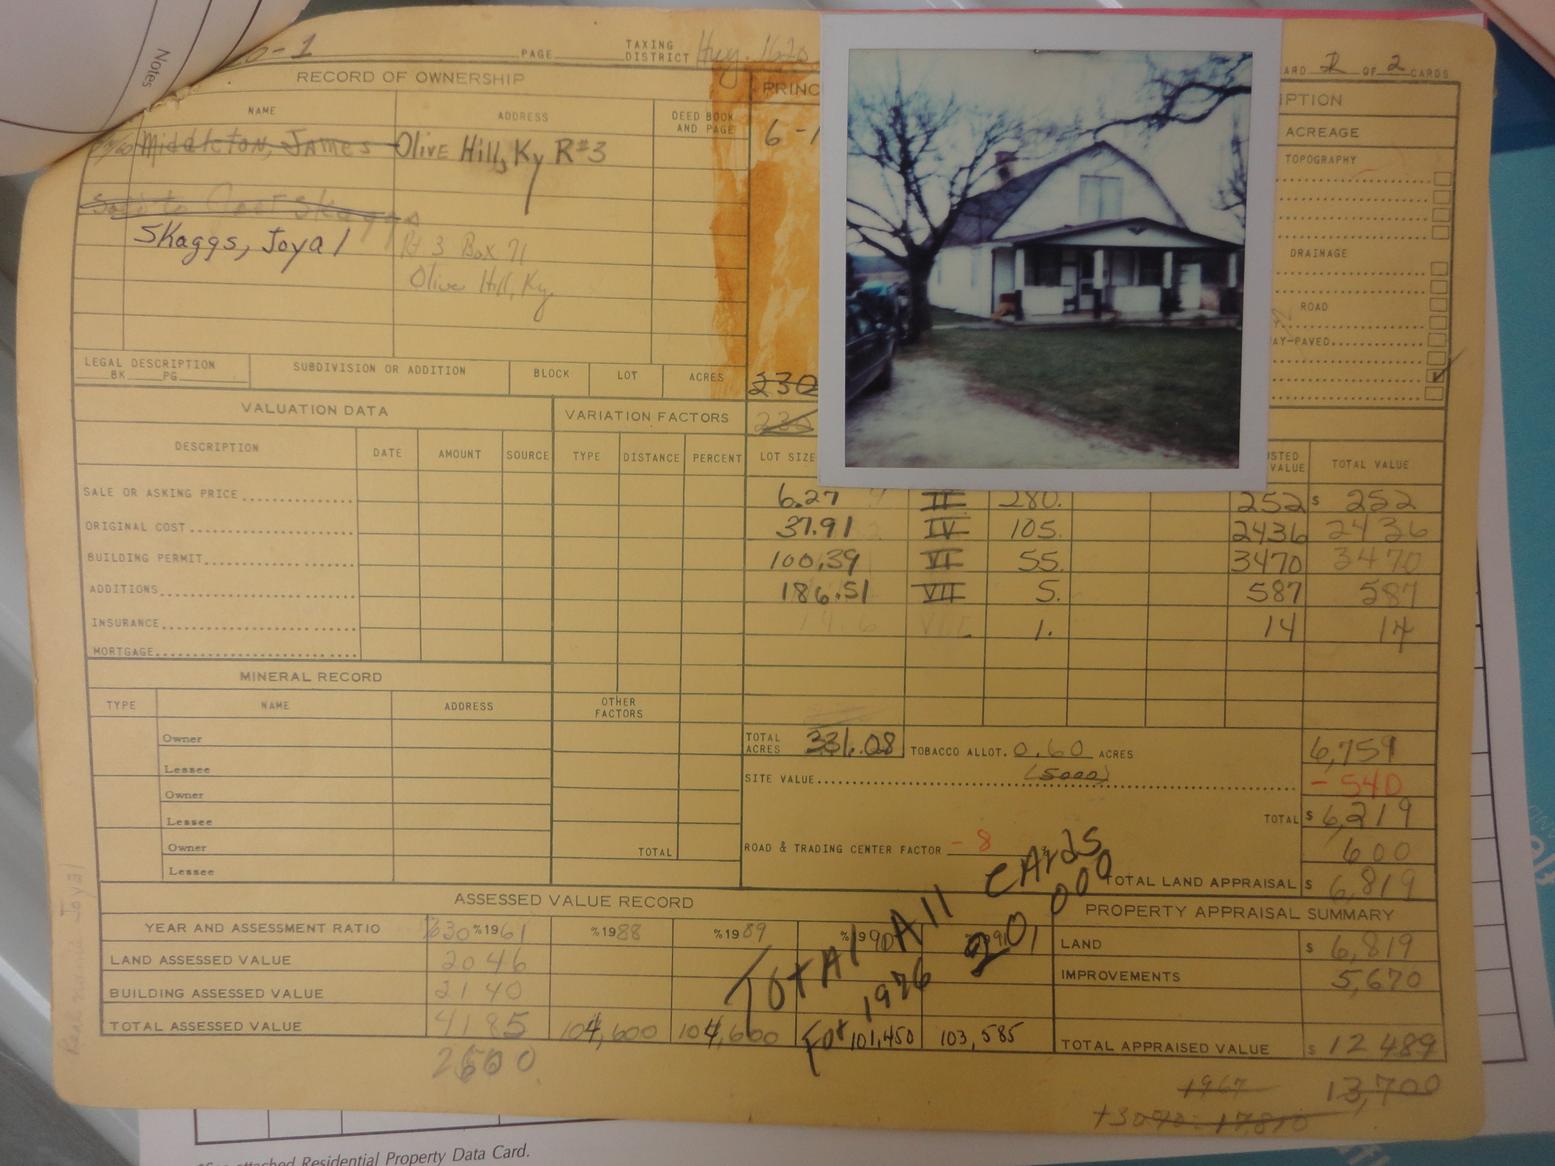 Notes
-1 PAGE TAXING DISTRICT Hwy. 1620 2 OF 2 CARDS
RECORD OF OWNERSHIP PRINC IPTION
NAME ADDRESS DEED BOOK AND PAGE ACREAGE
Middleton, James Olive Hill, Ky R#3 6-1 TOPOGRAPHY
Sold to Skaggs
Skaggs, Joyal Rt 3 Box 71
Olive Hill, Ky.
DRAINAGE
ROAD
AY-PAVED
LEGAL DESCRIPTION SUBDIVISION OR ADDITION BLOCK LOT ACRES 230
BK PG
VALUATION DATA VARIATION FACTORS
DESCRIPTION DATE AMOUNT SOURCE TYPE DISTANCE PERCENT LOT SIZE VALUE TOTAL VALUE
SALE OR ASKING PRICE 6.27 II 280. 252 $ 252
ORIGINAL COST 37.91 IV 105. 2436 2436
BUILDING PERMIT 100.39 VI 55. 3470 3470
ADDITIONS 186.51 VII 5. 587 587
INSURANCE 1. 14 14
MORTGAGE
MINERAL RECORD
TYPE NAME ADDRESS OTHER FACTORS
Owner TOTAL ACRES 331.08 TOBACCO ALLOT. 0.60 ACRES 6,759
Lessee SITE VALUE (5000) - 540
Owner
Lessee TOTAL $ 6,219
Owner TOTAL ROAD & TRADING CENTER FACTOR - 8 600
Lessee TOTAL LAND APPRAISAL $ 6,819
Total All Cards
For 1976 20,000
ASSESSED VALUE RECORD PROPERTY APPRAISAL SUMMARY
YEAR AND ASSESSMENT RATIO 30 %1961 %1988 %1989 %1990 LAND $ 6,819
LAND ASSESSED VALUE 2046 IMPROVEMENTS 5,670
BUILDING ASSESSED VALUE 2140
TOTAL ASSESSED VALUE 4185 104,600 104,600 101,450 103,585 TOTAL APPRAISED VALUE $ 12489
1967 13,700
attached Residential Property Data Card.